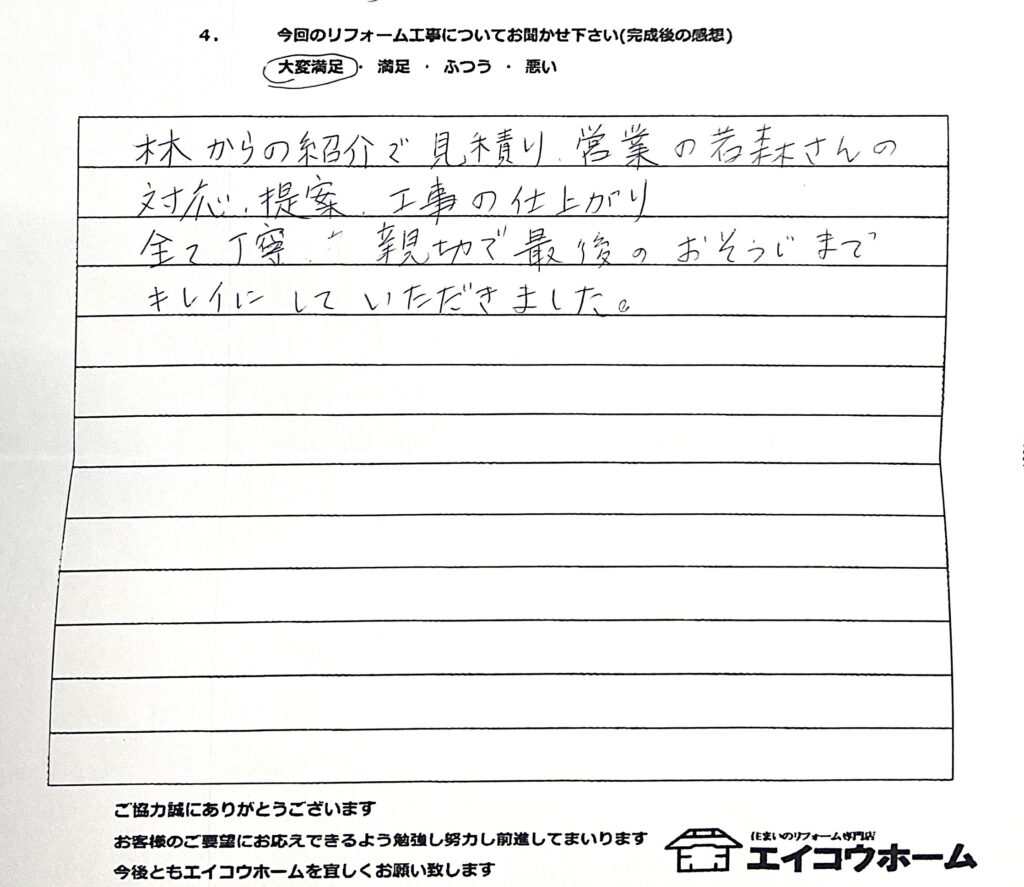 4. 今回のリフォーム工事についてお聞かせ下さい(完成後の感想)
大変満足 ・ 満足 ・ ふつう ・ 悪い
林からの紹介で見積り、営業の若森さんの
対応、提案、工事の仕上がり
全て丁寧 親切で最後のおそうじまで
キレイにしていただきました。
ご協力誠にありがとうございます
お客様のご要望にお応えできるよう勉強し努力し前進してまいります
今後ともエイコウホームを宜しくお願い致します
住まいのリフォーム専門店
エイコウホーム